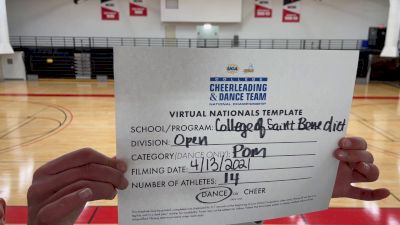 UCA UDA
COLLEGE
CHEERLEADING
& DANCE TEAM
NATIONAL CHAMPIONSHIP
VIRTUAL NATIONALS TEMPLATE
SCHOOL/PROGRAM: College of Saint Benedict
DIVISION: Open
CATEGORY (DANCE ONLY): Pom
FILMING DATE: 4/13/2021
NUMBER OF ATHLETES: 14
DANCE or CHEER